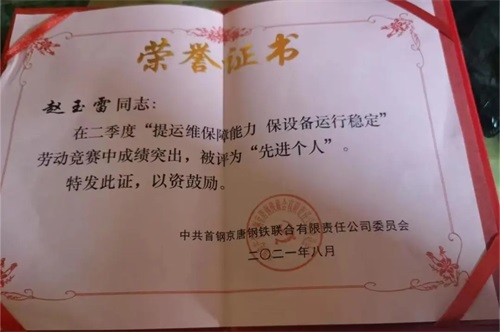 荣誉证书
赵玉雷同志：
在二季度“提运维保障能力 保设备运行稳定”
劳动竞赛中成绩突出，被评为“先进个人”。
特发此证，以资鼓励。
中共首钢京唐钢铁联合有限责任公司委员会
二〇二一年八月